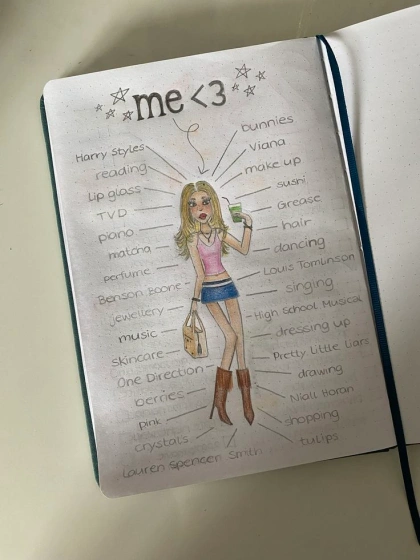 me <3
Harry Styles
reading
Lip gloss
TVD
piano
matcha
perfume
Benson Boone
jewellery
music
skincare
One Direction
berries
pink
crystals
Lauren Spencer Smith
bunnies
Viana
make up
sushi
Grease
hair
dancing
Louis Tomlinson
singing
High School Musical
dressing up
Pretty Little Liars
drawing
Niall Horan
shopping
tulips